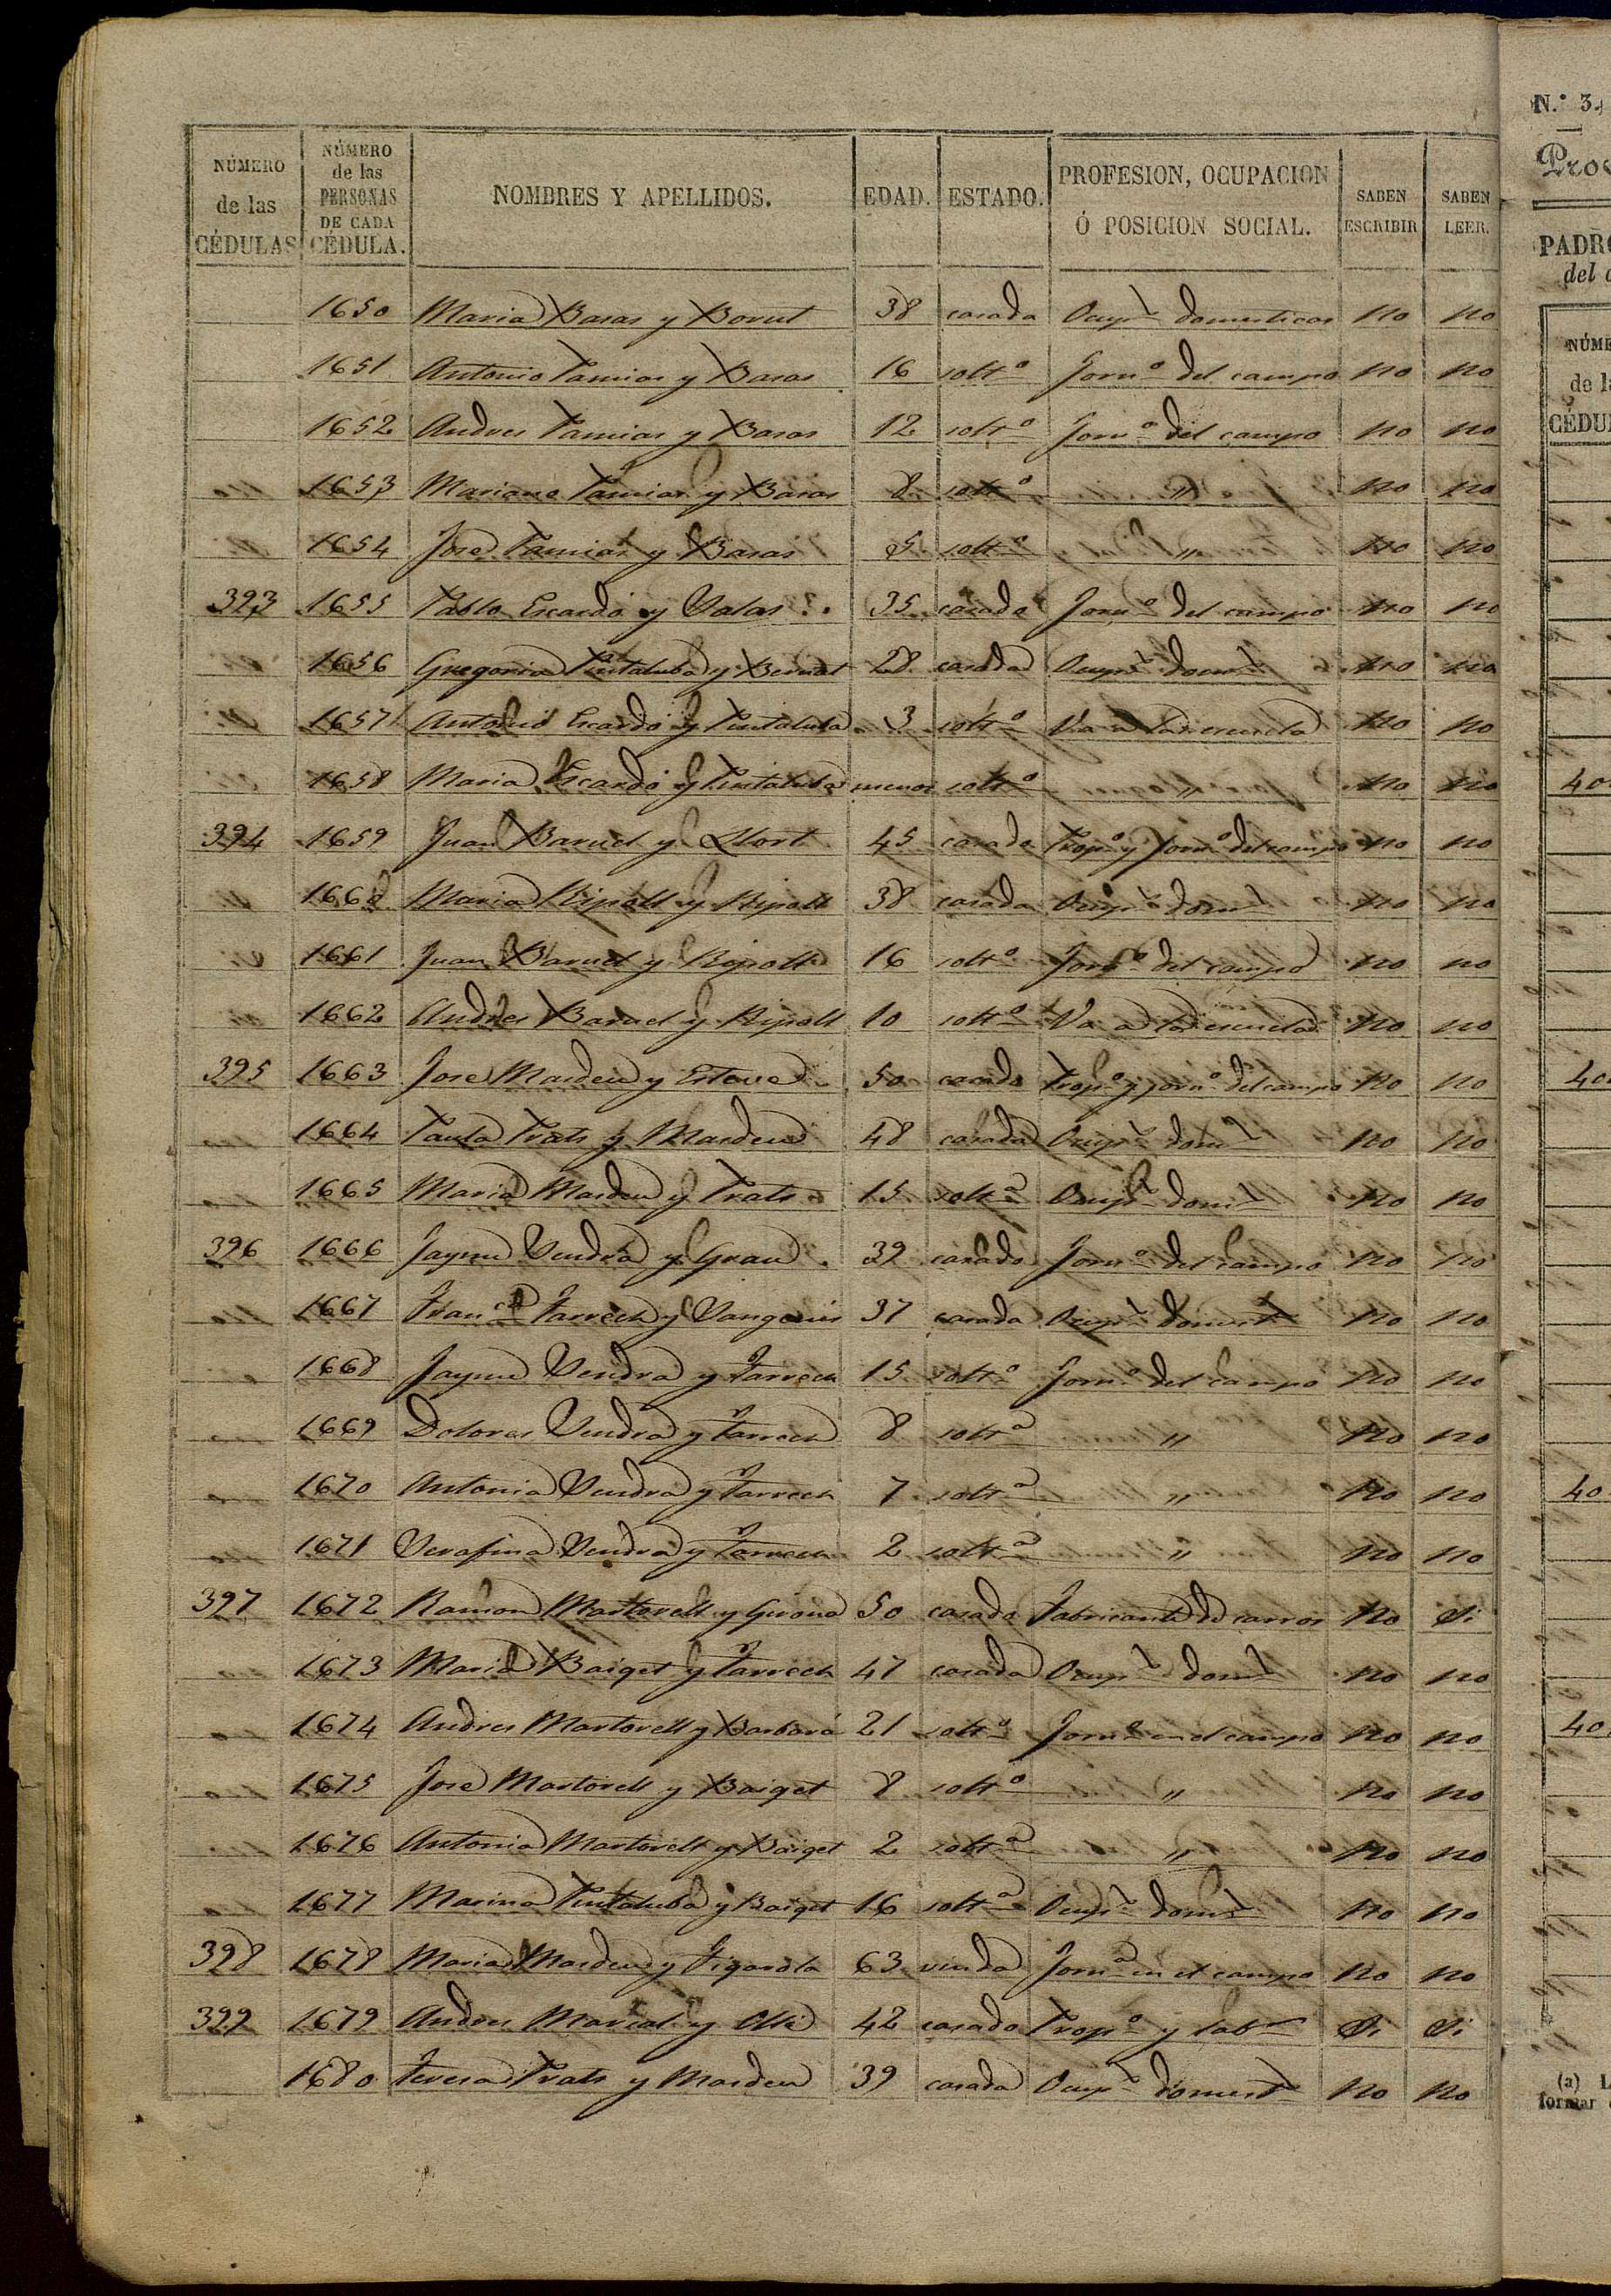 NÚMERO de las CÉDULAS NÚMERO de las PERSONAS DE CADA CÉDULA. NOMBRES Y APELLIDOS. EDAD. ESTADO. PROFESION, OCUPACION Ó POSICION SOCIAL. SABEN ESCRIBIR SABEN LEER.
1650 Maria Basas y 38 casada Ocup.s domesticas no no
1651 Antonio Pamias y Basas 16 solt.o Jorn.o del campo no no
1652 Andres Pamias y Basas 12 solt.o Jorn.o del campo no no
1653 Mariano Pamias y Basas 8 solt.o " no no
1654 Jose Pamias y Basas 5 solt.o " no no
393 1655 Pablo Escardó y Salas 35 casado Jorn.o del campo no no
1656 Gregoria Pintaluba y Bernat 28 casada Ocup.s dom.s no no
1657 Antonio Escardó y Pintaluba 3 solt.o Va a la escuela no no
1658 Maria Escardó y Pintaluba menor solt.o " no no
394 1659 Juan Baruel y Llort 45 casado Prop.o y Jorn.o del campo no no
1660 Maria Ripoll y Ripoll 38 casada Ocup.s dom.s no no
1661 Juan Baruel y Ripoll 16 solt.o Jorn.o del campo no no
1662 Andres Baruel y Ripoll 10 solt.o Va a la escuela no no
395 1663 Jose Masdeu y Esteve 50 casado Prop.o y jorn.o del campo no no
1664 Paula Prats y Masdeu 48 casada Ocup.s dom.s no no
1665 Maria Masdeu y Prats 15 solt.a Ocup.s dom.s no no
396 1666 Jayme Vendra y Grau 39 casado Jorn.o del campo no no
1667 Fran.ca Tarrech y 37 casada Ocup.s domest.s no no
1668 Jayme Vendra y Tarrech 15 solt.o Jorn.o del campo no no
1669 Dolores Vendra y Tarrech 8 solt.a " no no
1670 Antonia Vendra y Tarrech 7 solt.a " no no
1671 Serafina Vendra y Tarrech 2 solt.a " no no
397 1672 Ramon Martorell y Girona 50 casado Fabricante de carros no Si
1673 Maria Baiget y Tarrech 47 casada Ocup.s dom.s no no
1674 Andres Martorell y Barbará 21 solt.o Jorn.o en el campo no no
1675 Jose Martorell y Baiget 8 solt.o " no no
1676 Antonia Martorell y Baiget 2 solt.a " no no
1677 Marina Pintaluba y Baiget 16 solt.a Ocup.s dom.s no no
398 1678 Maria Masdeu y Figarola 63 viuda Jorn.a en el campo no no
399 1679 Andres Marcal y Ollé 42 casado Prop.o y lab.r Si Si
1680 Teresa Prats y Masdeu 39 casada Ocup.s domest.s no no
N.º 3.
PADR
del
NÚME
de la
CÉDU
40
40
40
40
(a) L
formar